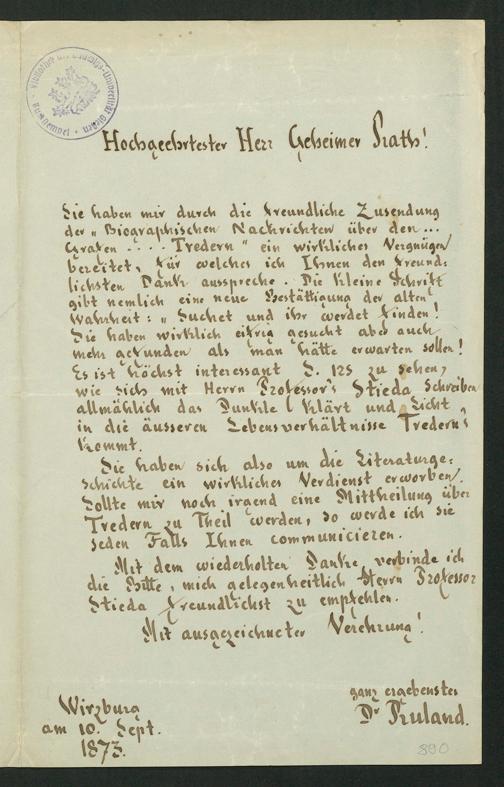 Hochgeehrtester Herr Geheimer Rath!
Sie haben mir durch die freundliche Zusendung
der „Biographischen Nachrichten über den ...
Grafen .... Tredern" ein wirkliches Vergnügen
bereitet, für welches ich Ihnen den freund-
lichsten Dank ausspreche. Die kleine Schrift
gibt nemlich eine neue Bestättigung der alten
Wahrheit: „Suchet und ihr werdet finden!
Sie haben wirklich eifrig gesucht aber auch
mehr gefunden als man hätte erwarten sollen!
Es ist höchst interessant S. 125 zu sehen,
wie sich mit Herrn Professor's Stieda Schreiben
allmählich das Dunkle klärt und Licht
in die äusseren Lebensverhältnisse Tredern's
kommt.
Sie haben sich also um die Literaturge-
schichte ein wirkliches Verdienst erworben.
Sollte mir noch irgend eine Mittheilung über
Tredern zu Theil werden, so werde ich sie
jeden Falls Ihnen communicieren.
Mit dem wiederholten Danke verbinde ich
die Bitte, mich gelegenheitlich Herrn Professor
Stieda freundlichst zu empfehlen.
Mit ausgezeichneter Verehrung!
ganz ergebenster
Dr Ruland.
Wirzburg
am 10. Sept.
1873.
890